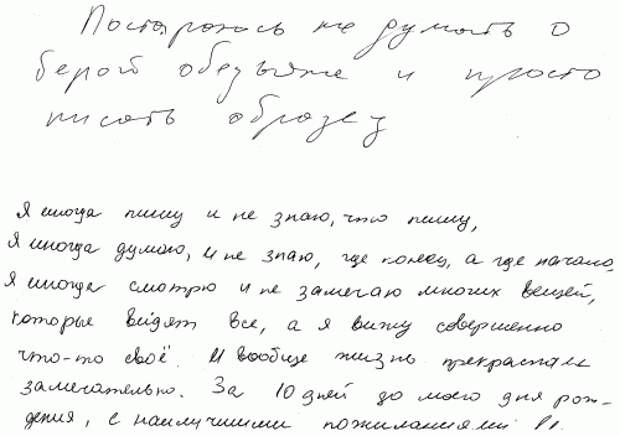 Постараюсь не думать о
белой обезьяне и просто
писать образец
Я иногда пишу и не знаю, что пишу,
Я иногда думаю, и не знаю, где конец, а где начало,
Я иногда смотрю и не замечаю многих вещей,
которые видят все, а я вижу совершенно
что-то своё. И вообще жизнь прекрасна и
замечательно. За 10 дней до моего дня рож-
дения, с наилучшими пожиланиями